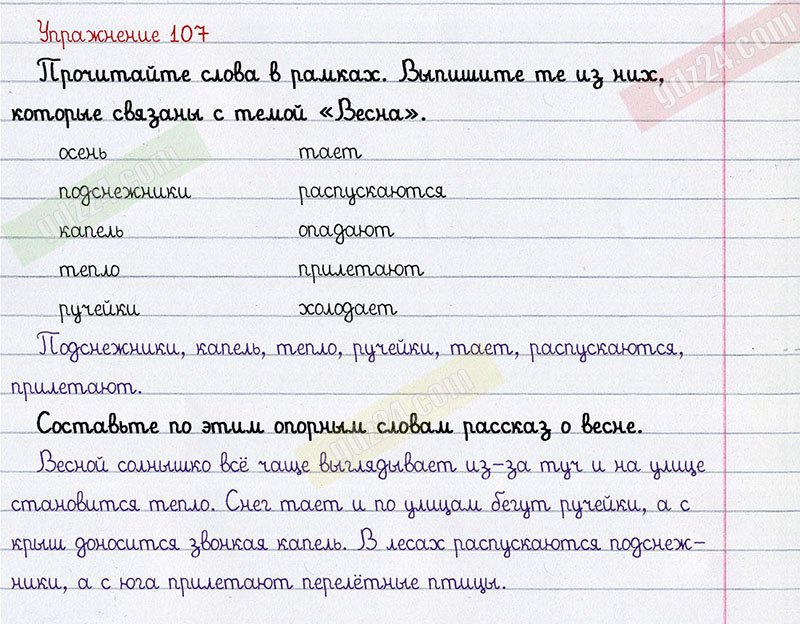 Упражнение 107
Прочитайте слова в рамках. Выпишите те из них,
которые связаны с темой «Весна».
осень тает
подснежники распускаются
капель опадают
тепло прилетают
ручейки холодает
Подснежники, капель, тепло, ручейки, тает, распускаются,
прилетают.
Составьте по этим опорным словам рассказ о весне.
Весной солнышко всё чаще выглядывает из-за туч и на улице
становится тепло. Снег тает и по улицам бегут ручейки, а с
крыш доносится звонкая капель. В лесах распускаются подснеж-
ники, а с юга прилетают перелётные птицы.
gdz24.com
gdz24.com
gdz24.com